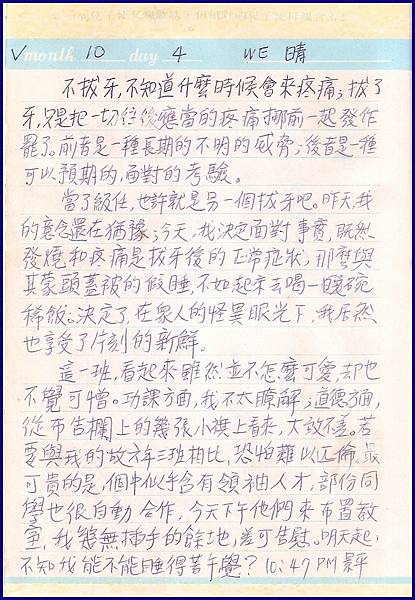 ✓month 10 day 4 WE 晴
不拔牙,不知道什麼時候會來疼痛;拔了
牙,只是把一切往後應當的疼痛挪前一起發作
罷了。前者是一種長期的不明的威脅;後者是一種
可以預期的,面對的考驗。
當了級任,也許就是另一個拔牙吧。昨天,我
的意念還在猶豫;今天,我決定面對事實,既然
發燒和疼痛是拔牙後的正常症狀,那麼與
其蒙頭蓋被的假睡,不如起來去喝一晚碗
稀飯。決定了,在眾人的怪異眼光下,我居然
也享受了片刻的新鮮。
這一班,看起來雖然並不怎麼可愛,却也
不覺可憎。功課方面,我不太瞭解;道德方面,
從布告欄上的幾張小旗上看來,大致不差。若
要與我的故六年三班相比,恐怕難以正倫。最
可貴的是,個中似乎含有領袖人才,部份同
學也很自動合作,今天下午他們來布置教
室,我幾無插手的餘地,差可告慰。明天起,
不知我能不能睡得著午覺?10:47 PM 景平